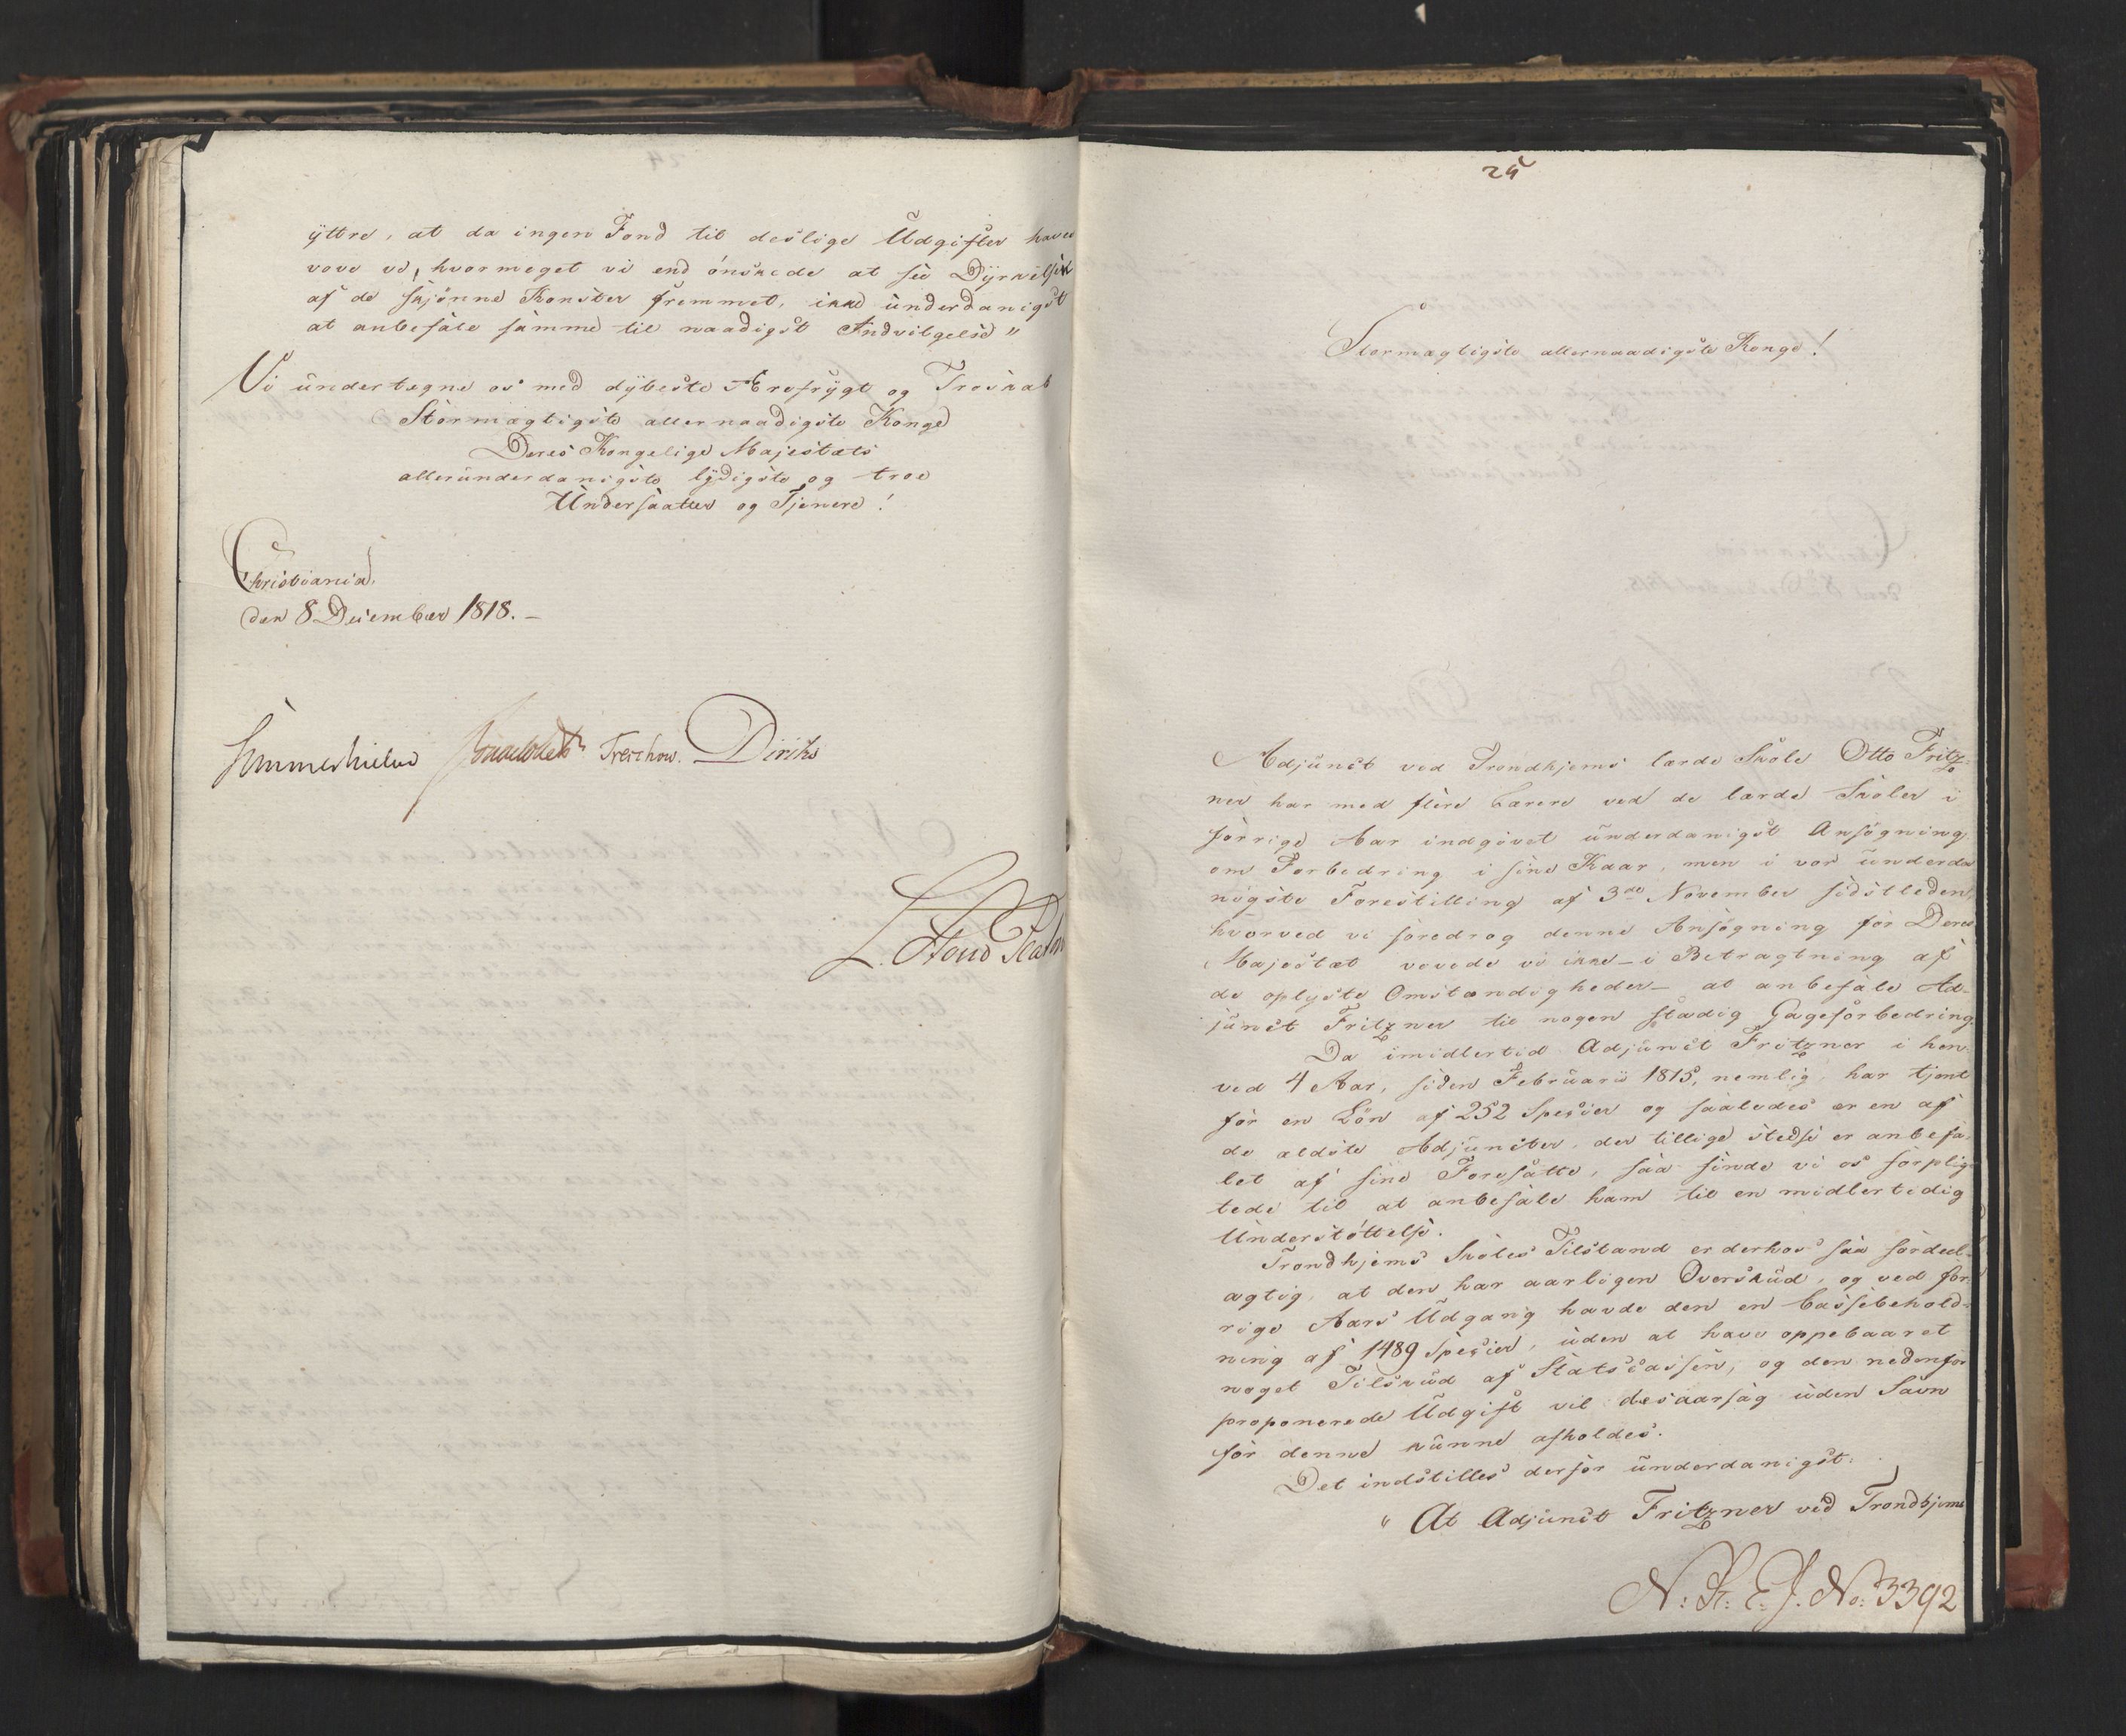 yttre, at da ingen Fond til deslige Udgifter haves
vove vi, hvormeget vi end ønskede at see Dyrkelsen
af de skjønne Konster fremmet, ikke underdanigst
at anbefale samme til naadigst Indvilgelse"
Vi undertegne os med dybeste Ærefrygt og Troskab
Stormægtigste allernaadigste Konge
Deres Kongelige Majestæts
allerunderdanigste lydigste og troe
Undersaatter og Tjenere!
Christiania,
den 8 December 1818. –
Sommerhielm Treschow. Diriks
L. Stoud Platou
25
Stormægtigste allernaadigste Konge!
Adjunct ved Trondhjems lærde Skole Otto Fritz-
ner har med flere Lærere ved de lærde Skoler i
forrige Aar indgivet underdanigst Ansøgning
om Forbedring i sine Kaar, men i vor underda
nigste Forestilling af 3die November sidstleden,
hvorved vi foredrog denne Ansøgning for Deres
Majestæt vovede vi ikke – i Betragtning af
de oplyste Omstændigheder – at anbefale Ad-
junct Fritzner til nogen stadig Gageforbedring.
Da imidlertid Adjunct Fritzner i hen-
ved 4 Aar, siden Februarii 1815, nemlig, har tjent
for en Løn af 252 Species og saaledes er en af
de ældste Adjuncter, der tillige stedse er anbefa-
let af sine Foresatte, saa finde vi os forplig-
tede til at anbefale ham til en midlertidig
Understøttelse.
Trondhjems Skoles Tilstand er derhos saa fordeel-
agtig, at den har aarligen Overskud, og ved for-
rige Aars Udgang havde den en Cassebehold-
ning af 1489 Species, uden at have oppebaaret
noget Tilskud af Statscassen, og den nedenfor
proponerede Udgift vil desaarsag uden Savn
for denne kunne afholdes.
Det indstilles derfor underdanigst:
" At Adjunct Fritzner ved Trondhjems
N: K: E. J. No: 3392